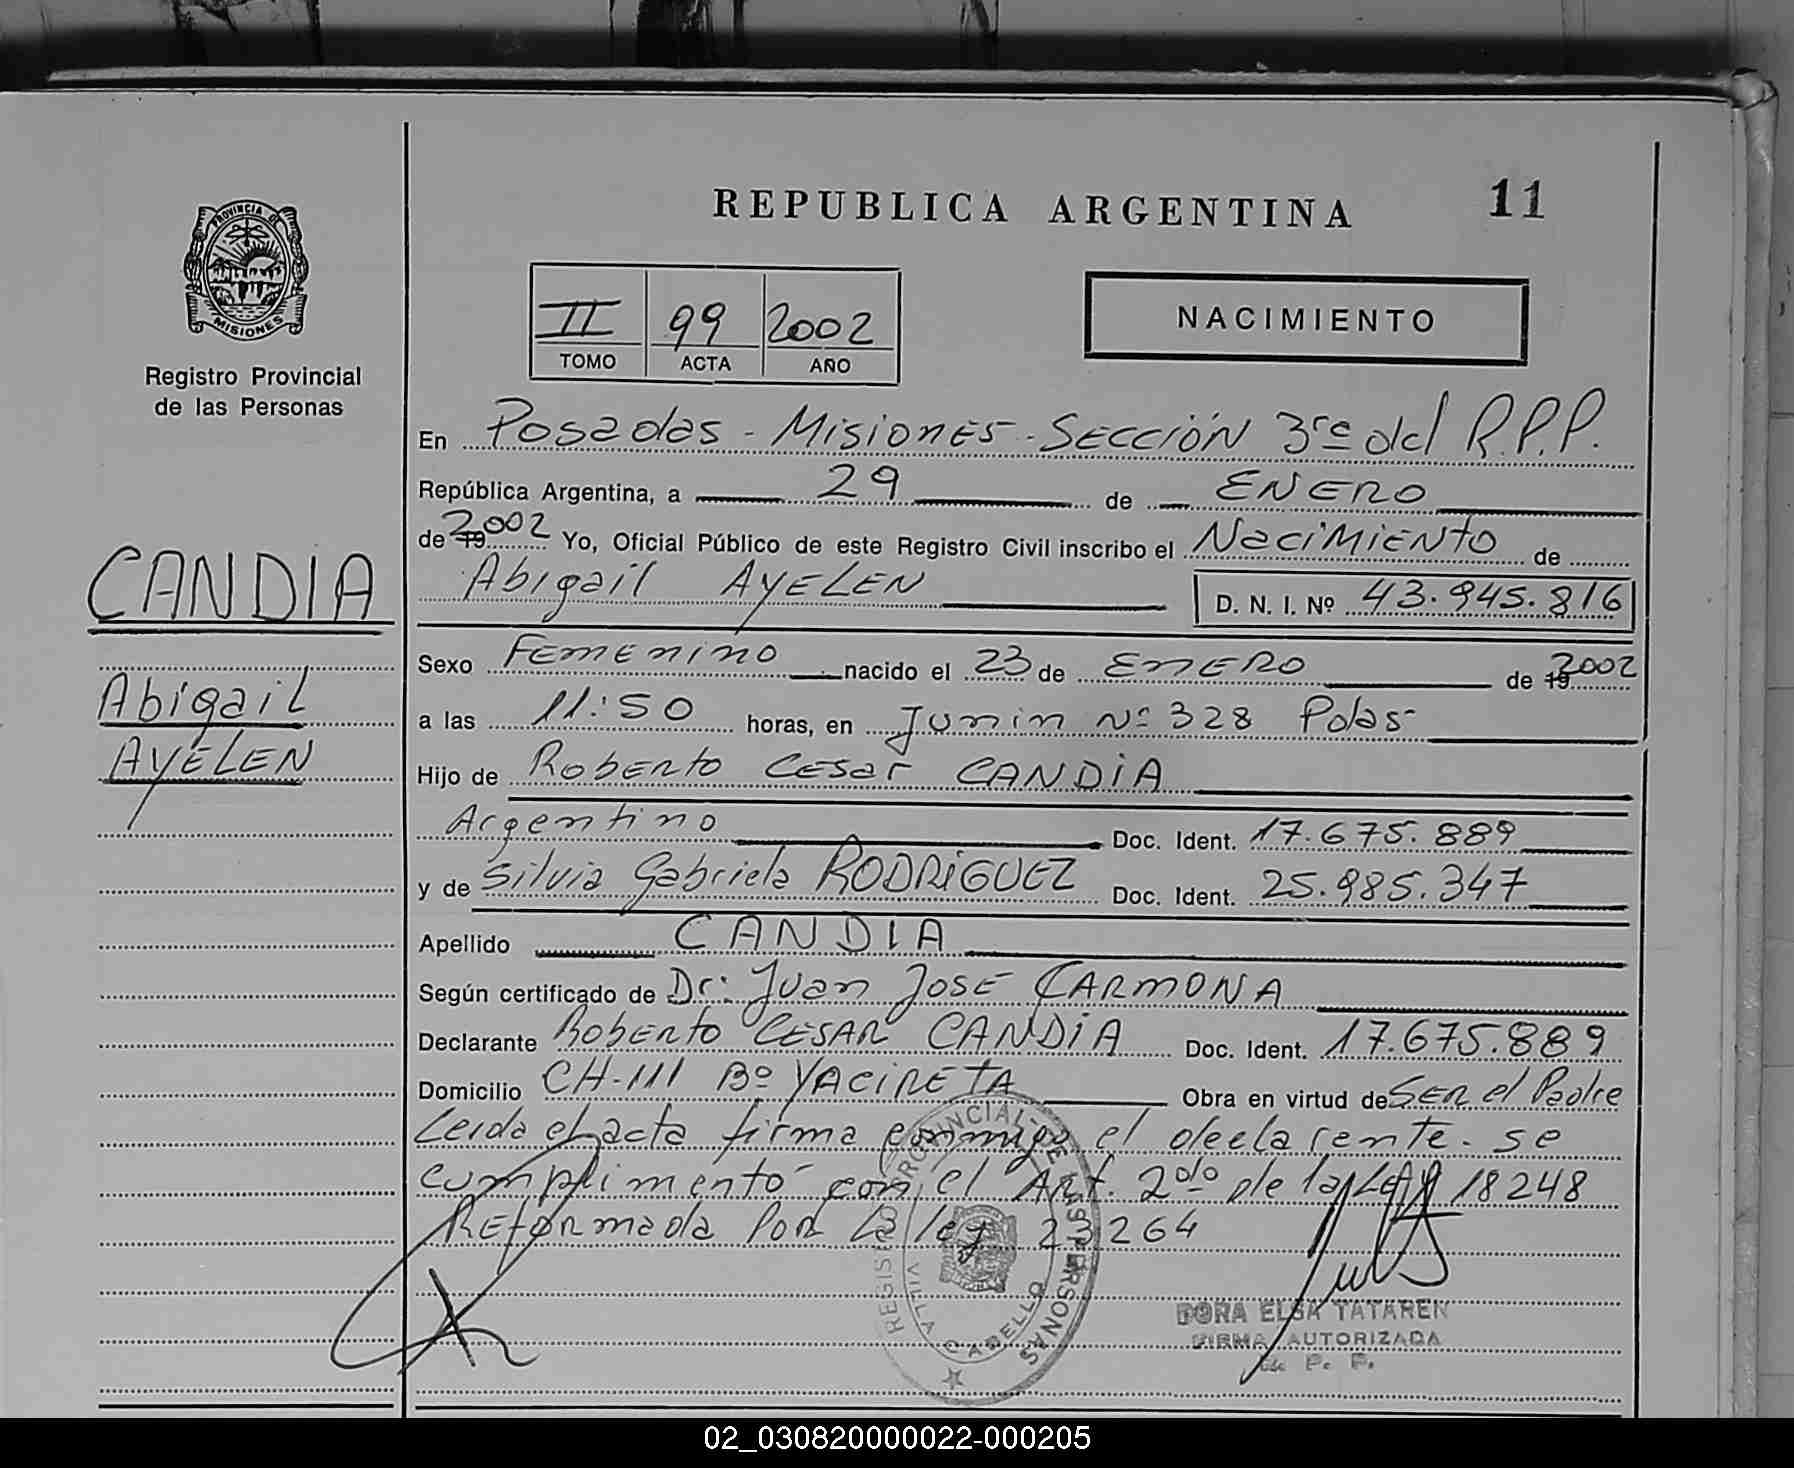 REPUBLICA ARGENTINA 11
PROVINCIA DE
MISIONES
Registro Provincial
de las Personas
II 99 2002
TOMO ACTA AÑO
NACIMIENTO
En Posadas - Misiones - Sección 3ra del R.P.P.
República Argentina, a 29 de ENERO
de 19 2002 Yo, Oficial Público de este Registro Civil inscribo el Nacimiento de
Abigail AYELEN D. N. I. Nº 43.945.816
CANDIA
Abigail
AYELEN
Sexo Femenino nacido el 23 de Enero de 19 2002
a las 11:50 horas, en Junin Nº 328 Pdas
Hijo de Roberto Cesar CANDIA
Argentino Doc. Ident. 17.675.889
y de Silvia Gabriela RODRIGUEZ Doc. Ident. 25.985.347
Apellido CANDIA
Según certificado de Dr: Juan José CARMONA
Declarante Roberto CESAR CANDIA Doc. Ident. 17.675.889
Domicilio CH-111 Bº YACIRETA Obra en virtud de SER el Padre
Leida el acta firma conmigo el declarente. se
cumplimentó con el Art. 2do de la LEY 18248
Reformada Por La ley 23264
REGISTRO PROVINCIAL DE LAS PERSONAS
VILLA CABELLO
DORA ELSA TATAREN
FIRMA AUTORIZADA
02_030820000022-000205